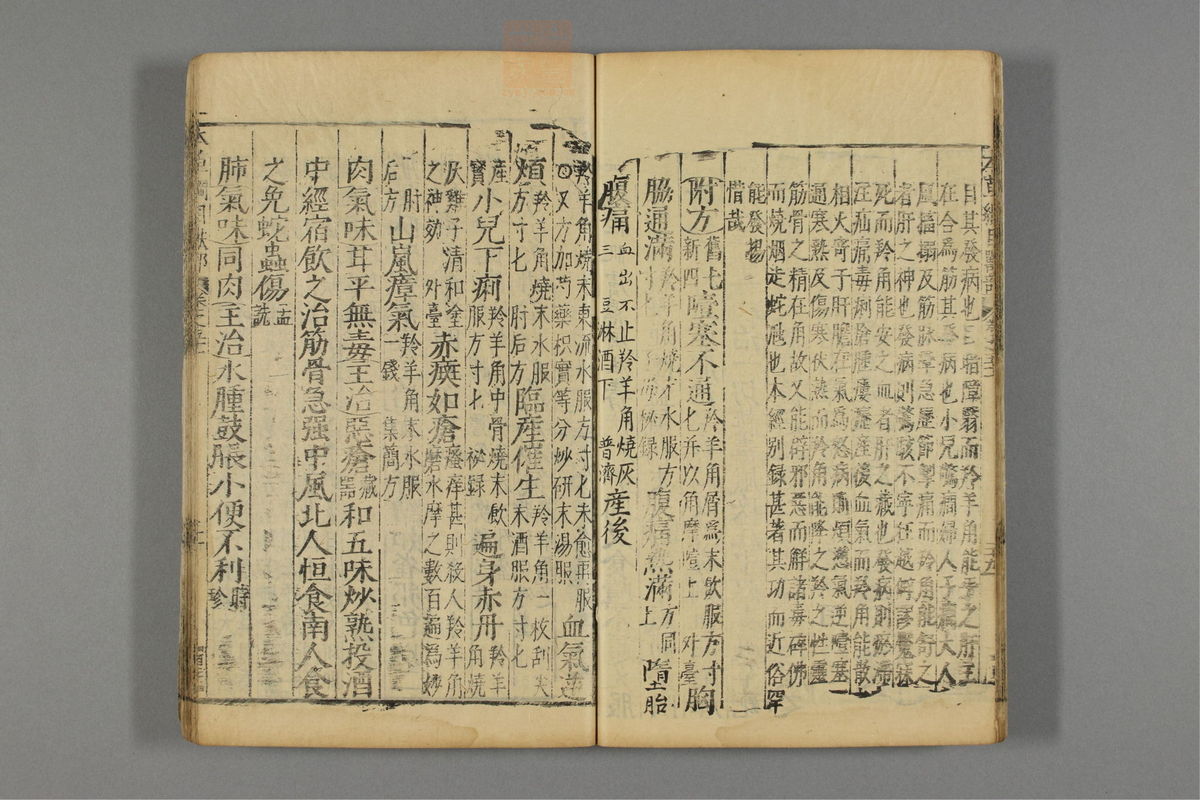 目其發病也目暗障翳而羚羊角能平之肝主風
在合為筋其發病也小兒驚癇婦人子癇大人中
風搐搦及筋脉攣急歷節掣痛而羚角能舒之魂
者肝之神也發病則驚駭不寧狂越僻謬魘寐卒
死而羚角能安之血者肝之藏也發病則瘀滯下
注疝痛毒痢瘡腫瘻癧產後血氣而羚角能散之
相火寄于肝膽在氣為怒病則煩懣氣逆噎塞不
通寒熱及傷寒伏熱而羚角能降之羚之性靈而
筋骨之精在角故又能辟邪惡而解諸毒碎佛牙
而燒烟走蛇虺也本經別錄甚著其功而近俗罕
能發揚
惜哉
附方
舊七
新四
噎塞不通
羚羊角屑為末飲服方寸
匕并以角摩噎上 外臺
胸
脇逋滿
羚羊角燒末水服方
寸匕 子母秘錄
腹痛熱滿
方同
上
墮胎
腹痛
血出不止羚羊角燒灰
三 豆淋酒下 普濟
產後
煩
方寸匕 肘后方
羚羊角燒末水服
羚羊角燒末東流水服方寸匕未愈再服
○又方加芍藥枳實等分炒研末湯服
血氣逆
臨產催生
羚羊角一枚刮尖
末酒服方寸匕
產
寶
小兒下痢
羚羊角中骨燒末飲
服方寸匕 秘錄
遍身赤丹
羚羊
角燒
灰雞子清和塗
之神効 外臺
赤瘢如瘡
瘙痒甚則殺人羚羊角
磨水摩之數百遍為妙
肘
后方
山嵐瘴氣
羚羊角末水服
一錢 集簡方
肉氣味甘平無毒主治惡瘡
藏
器
和五味炒熟投酒
中經宿飲之治筋骨急强中風北人恒食南人食
之免蛇蟲傷
孟
詵
肺氣味同肉主治水腫鼓脹小便不利
時
珍